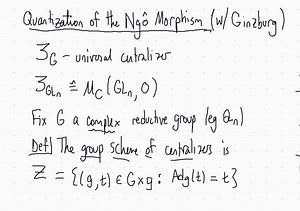 Quantization of the Ngô Morphism (w/ Ginzburg)
𝔍_G - universal centralizer
𝔍_{GL_n} ≅ M_C(GL_n, 0)
Fix G a complex reductive group (eg GL_n)
Def| The group scheme of centralizers is
Z = {(g,t) ∈ G×g : Ad_g(t) = t}